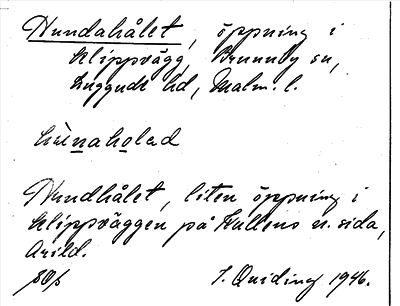 Hundahålet, öppning i
klippvägg, Brunnby sn,
Luggude hd, Malm. l.
hùnaholad
Hundhålet, liten öppning i
klippväggen på Kullens n. sida,
Arild.
S. Quiding 1946.